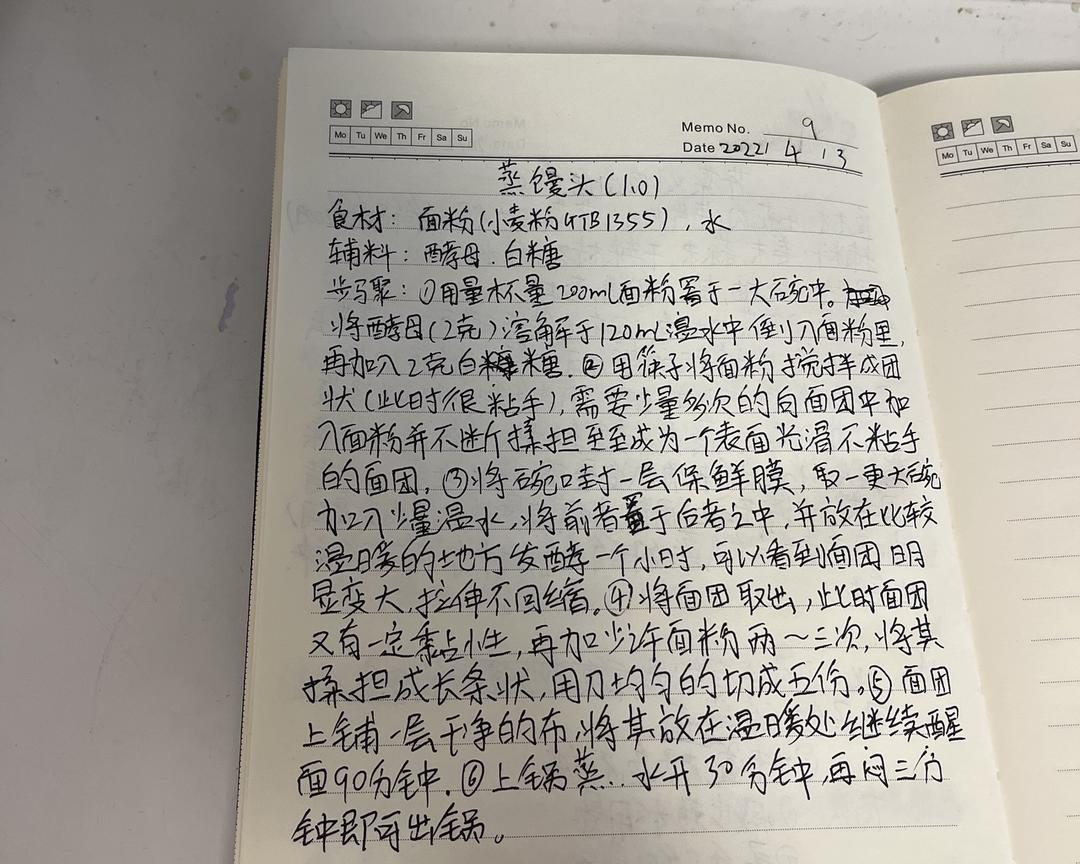 Mo Tu We Th Fr Sa Su
Memo No. 9
Date 2022/ 4 13
蒸馒头(1.0)
食材：面粉(小麦粉GTB1355)，水
辅料：酵母.白糖
步骤：①用量杯量200mL面粉置于一大碗中。
将酵母(2克)溶解于120mL温水中倒入面粉里，
再加入2克白糖.②用筷子将面粉搅拌成团
状(此时很粘手)，需要少量多次的向面团中加
入面粉并不断揉担至至成为一个表面光滑不粘手
的面团.③将碗口封一层保鲜膜，取一更大碗
加入少量温水，将前者置于后者之中，并放在比较
温暖的地方发酵一个小时，可以看到面团明
显变大，拉伸不回缩。④将面团取出，此时面团
又有一定黏性，再加少许面粉两～三次，将其
揉担成长条状，用刀均匀的切成五份。⑤面团
上铺一层干净的布，将其放在温暖处继续醒
面90分钟.⑥上锅蒸..水开30分钟，再闷三分
钟即可出锅。
Mo Tu We Th Fr Sa Su